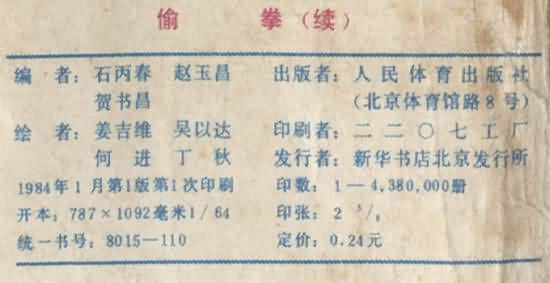 偷 拳（续）
编 者：石丙春 赵玉昌
贺书昌
绘 者：姜吉维 吴以达
何 进 丁 秋
1984年1月第1版第1次印刷
开本：787×1092毫米1/64
统一书号：8015—110
出版者：人民体育出版社
（北京体育馆路8号）
印刷者：二二〇七工厂
发行者：新华书店北京发行所
印数：1—4,380,000册
印张：2
定价：0.24元